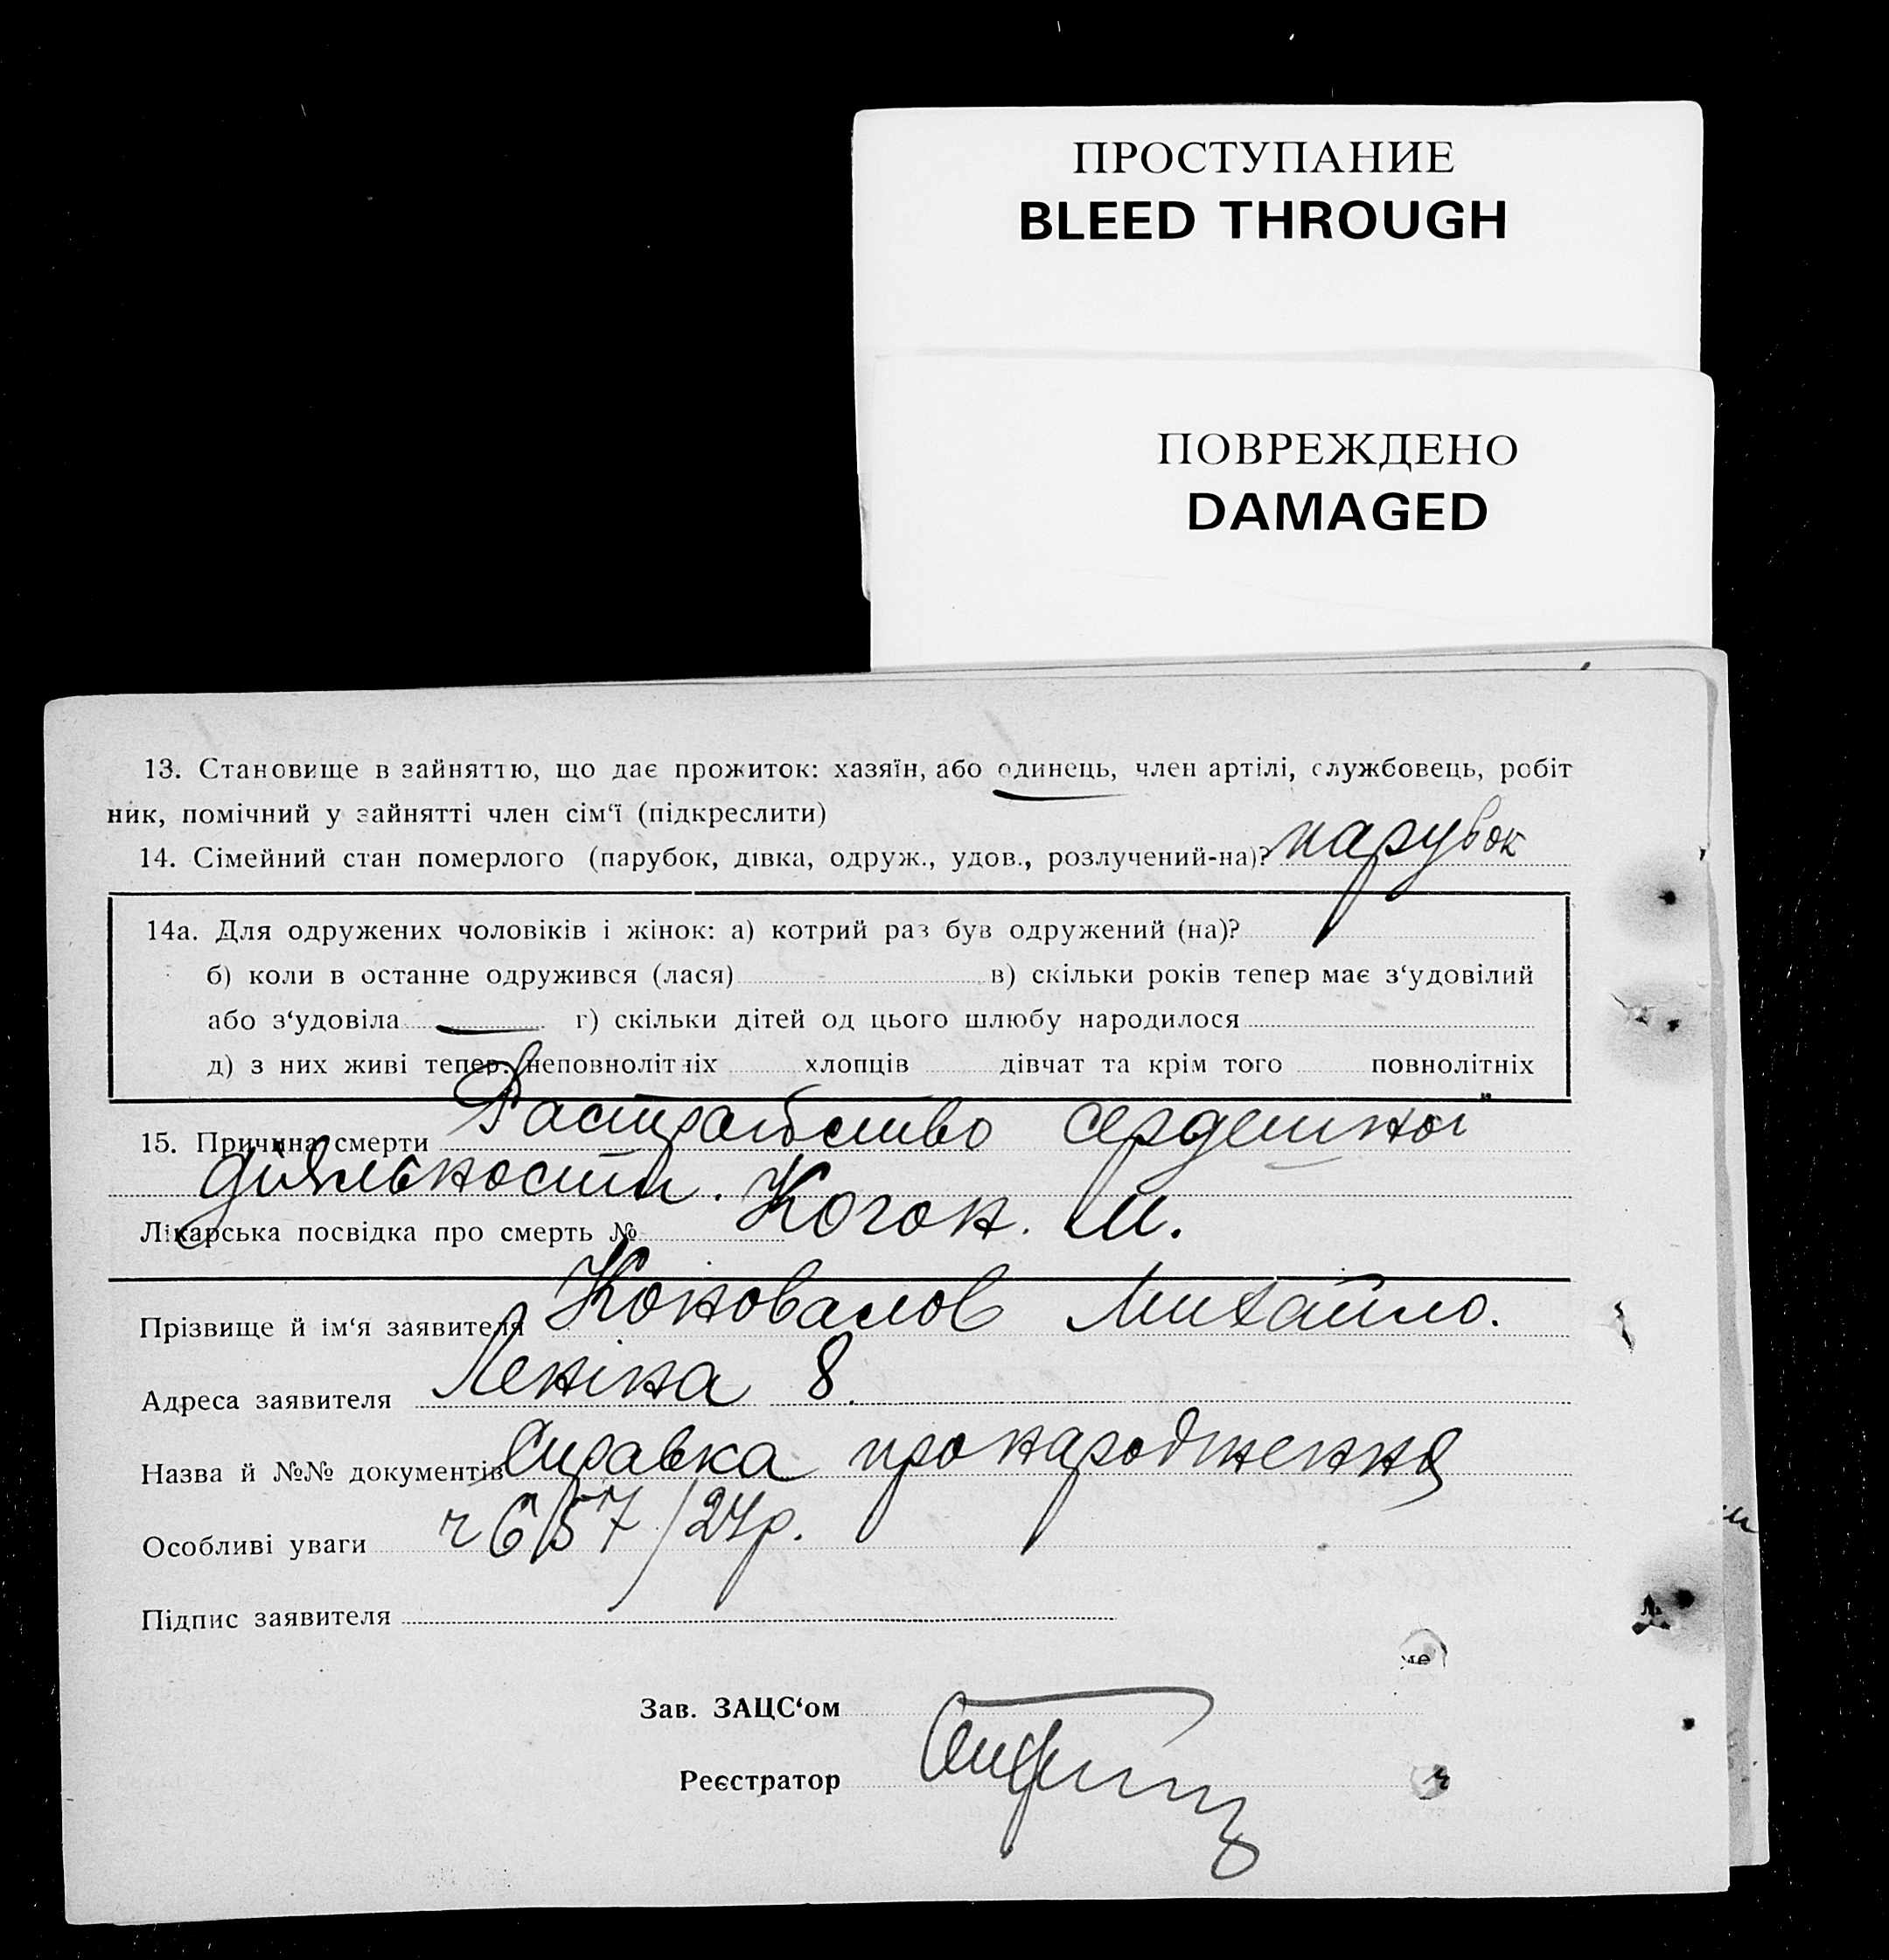 ПРОСТУПАНИЕ
BLEED THROUGH
ПОВРЕЖДЕНО
DAMAGED
13. Становище в зайняттю, що дає прожиток: хазяїн, або одинець, член артілі, службовець, робіт
ник, помічний у зайнятті член сім‘ї (підкреслити)
14. Сімейний стан померлого (парубок, дівка, одруж., удов., розлучений-на)? парубок
14а. Для одружених чоловіків і жінок: а) котрий раз був одружений (на)?
б) коли в останне одружився (лася) в) скільки років тепер має з‘удовілий
або з‘удовіла г) скільки дітей од цього шлюбу народилося
д) з них живі тепер: неповнолітніх хлопців дівчат та крім того повнолітніх
15. Причина смерти Растройство сердешної
діяльности.
Лікарська посвідка про смерть № Коган. М.
Прізвище й ім‘я заявителя Коновалов Михайло.
Адреса заявителя Леніна 8.
Назва й №№ документів Справка про народження
Особливі уваги ч 6157/24р.
Підпис заявителя
Зав. ЗАЦС‘ом
Реєстратор